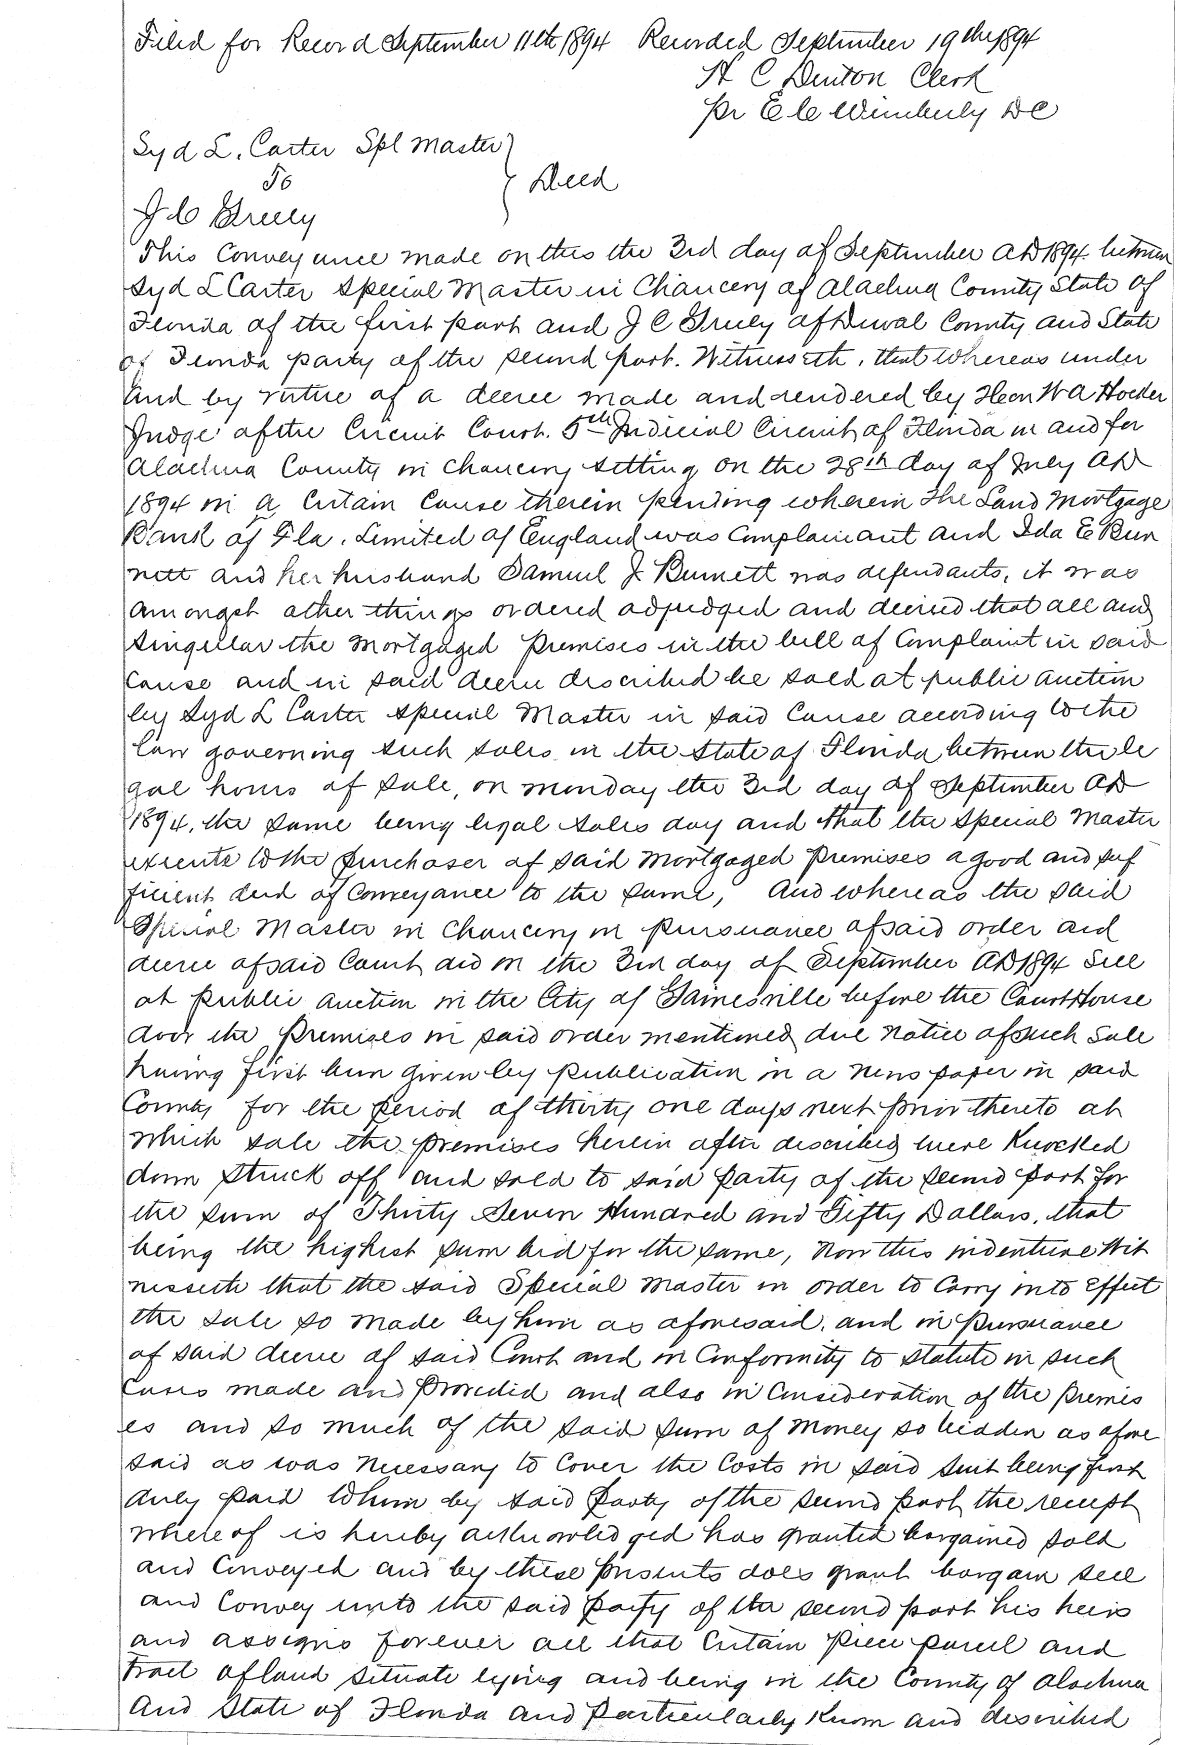 Filed for Record September 11th 1894 Recorded September 19th 1894
H C Denton Clerk
pr E C Wimberly DC
Syd L. Carter Spl Master
To
Deed
J C Greeley
This Conveyance made on this the 3rd day of September AD 1894 between
Syd L Carter Special Master in Chancery of Alachua County State of
Florida of the first part and J C Greeley of Duval County and State
of Florida party of the second part. Witnesseth, that whereas under
and by virtue of a decree made and rendered by Hon W A Hocker
Judge of the Circuit Court. 5th Judicial Circuit of Florida in and for
Alachua County in chancery sitting on the 28th day of July AD
1894 in a certain cause therein pending wherein The Land Mortgage
Bank of Fla. Limited of England was complainant and Ida E Bur
nett and her husband Samuel J Burnett was defendants, it was
amongst other things ordered adjudged and decreed that all and
singular the mortgaged premises in the bill of complaint in said
cause and in said decree described be sold at public auction
by Syd L Carter special Master in said cause according to the
law governing such sales in the State of Florida between the le
gal hours of sale, on monday the 3rd day of September AD
1894, the same being legal sales day and that the Special Master
execute to the purchaser of said mortgaged premises a good and suf
ficient deed of conveyance to the same, And whereas the said
Special Master in Chancery in pursuance of said order and
decree of said Court did on the 3rd day of September AD 1894 sell
at public auction in the City of Gainesville before the Court House
door the premises in said order mentioned due notice of such sale
having first been given by publication in a news paper in said
County for the period of thirty one days next prior thereto at
which sale the premises herein after described were knocked
down struck off and sold to said party of the second part for
the sum of Thirty Seven Hundred and Fifty Dollars, that
being the highest sum bid for the same, Now this indenture Wit
nesseth that the said Special Master in order to carry into effect
the sale so made by him as aforesaid. and in pursuance
of said decree of said Court and in conformity to statute in such
cases made and provided and also in consideration of the premis
es and so much of the said sum of money so bidden as afore
said as was necessary to cover the costs in said suit being first
duly paid to him by said party of the second part the receipt
where of is hereby acknowledged has granted bargained sold
and conveyed and by these presents does grant bargain sell
and convey unto the said party of the second part his heirs
and assigns forever all that certain piece parcel and
tract of land situate lying and being in the County of Alachua
and State of Florida and particularly known and described